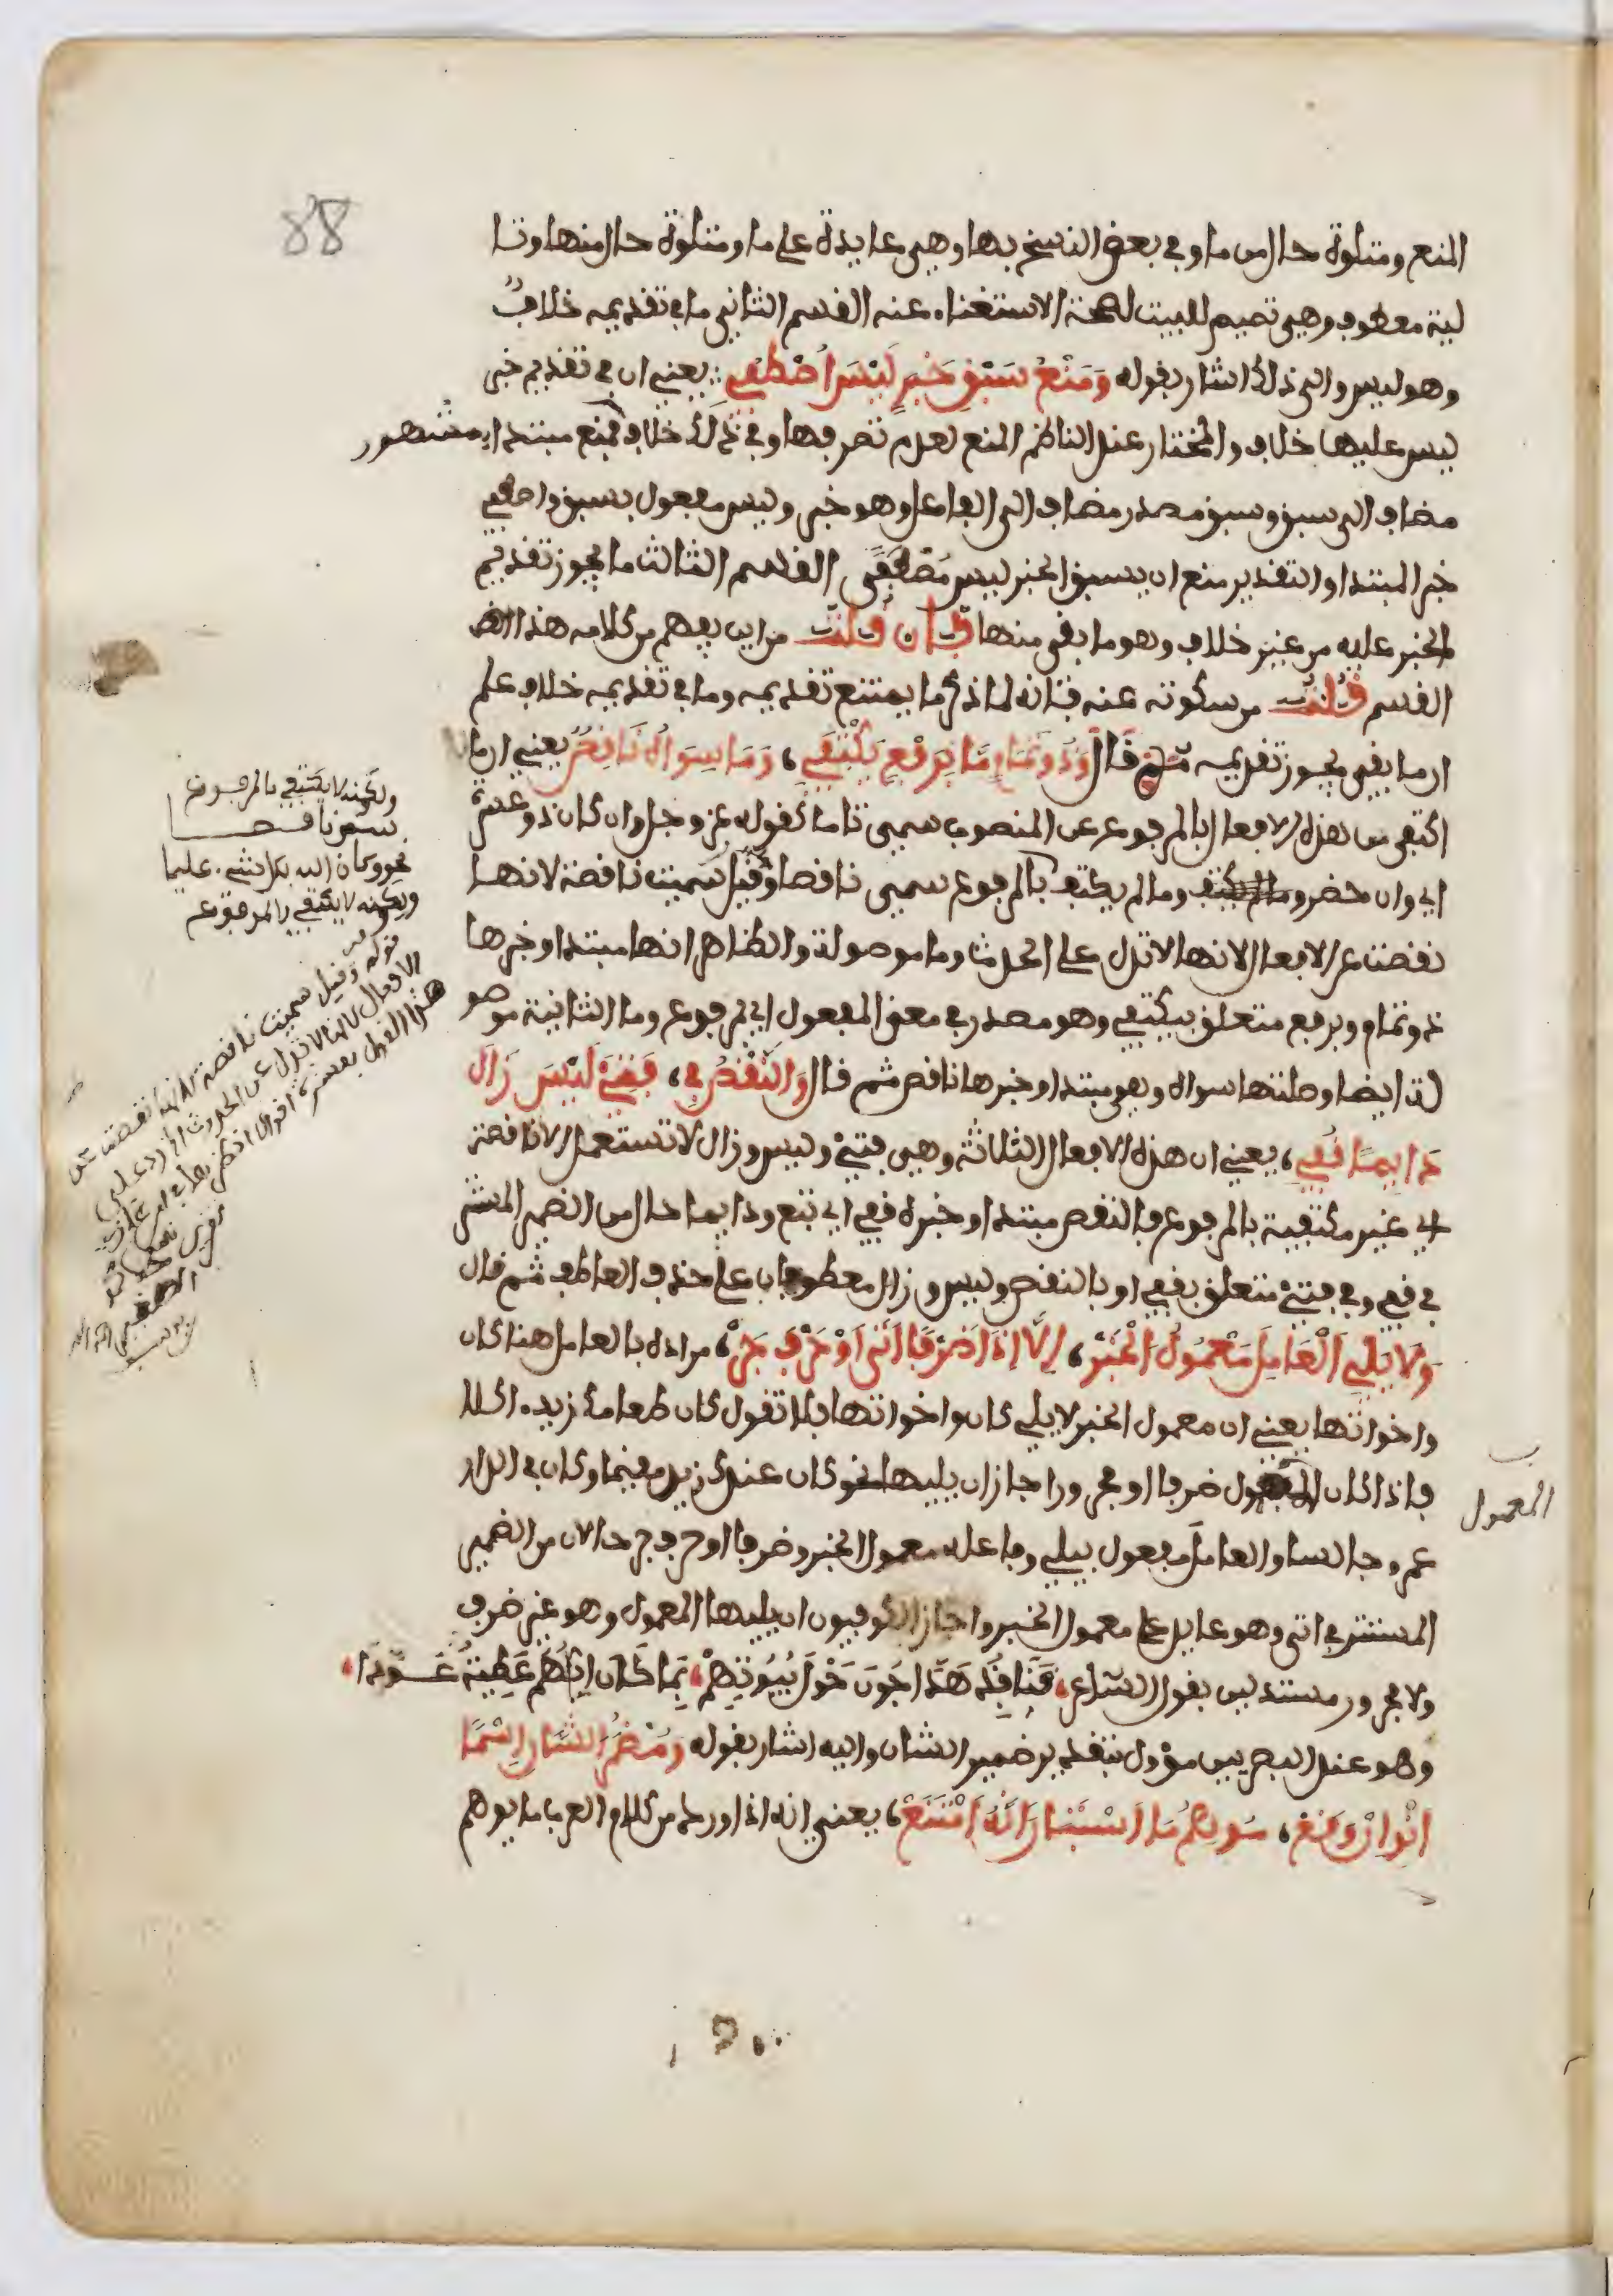 88
المنع ومتلوة حال من ما وفي بعض النسخ بها وهي عايدة على ما ومتلوة حال منها وتا
لية معطوف وهي تتميم للبيت لصحة الاستغناء عنه القسم الثاني ما في تقديمه خلاف
وهو ليس والى ذلك اشار بقوله وَمَنْعُ سَبْقِ خَبَرٍ لَيْسَ اصْطُفِي يعني ان في تقديم خبر
ليس عليها خلاف والمختار عند الناظم المنع لعدم تصرفها وفي ذلك خلاف فمنع مبتدا مشهور
مضاف الى سبق وسبق مصدر مضاف الى الفاعل وهو خبر وليس مفعول بسبق واصطفي
خبر المبتدا والتقدير منع ان يسبق الخبر ليس مصطفى القسم الثالث ما يجوز تقديم
الخبر عليه من غير خلاف وهو ما بقي منها فان قلت من اين يفهم من كلامه هذا
القسم قلت من سكوته عنه فانه لما ذكر ما يمتنع تقديمه وما في تقديمه خلاف علم
ان ما بقي يجوز تقديمه ثم قال وَذُو تَمَامٍ مَا بِرَفْعٍ يَكْتَفِي، وَمَا سِوَاهُ نَاقِصٌ يعني ان ما
اكتفى من هذه الافعال بالمرفوع عن المنصوب سمي تاما كقوله عز وجل وان كان ذو عسرة
اي وان حضر وما لم يكتف بالمرفوع سمي ناقصا وقيل سميت ناقصة لانها
نقصت عن الافعال لانها لا تدل على الحدث وما موصولة والظاهر انها مبتدا وخبرها
ذو تمام وبرفع متعلق بيكتفي وهو مصدر في معنى المفعول اي بمرفوع وما الثانية موصو
لة ايضا وصلتها سواه وهو مبتدا وخبرها ناقص ثم قال وَالنَّقْصُ فِي، فَتِئَ لَيْسَ زَالَ
دَايِمًا قُفِي، يعني ان هذه الافعال الثلاثة وهي فتئ وليس وزال لا تستعمل الا ناقصة
اي غير مكتفية بالمرفوع فالنقص مبتدا وخبره قفي اي تبع ودايما حال من الضمير المستتر
في قفي وفي فتئ متعلق بقفي او بالنقص وليس وزال معطوفان على حذف العاطف ثم قال
وَلَا يَلِي الْعَامِلَ مَعْمُولُ الْخَبَرْ، اِلَّا اِذَا ضَرْفًا اَتَى اَوْ حَرْفَ جَرّْ، مراده بالعامل هنا كان
واخواتها يعني ان معمول الخبر لا يلي كان واخواتها فلا تقول كان طعامك زيد اكلا
فاذا كان المعمول ضرفا او مجرورا جاز ان يليها نحو كان عندك زيد مقيما وكان في الدار
عمرو جالسا والعامل مفعول بيلي وفاعله معمول الخبر وضرفا او حرف جر حالان من الضمير
المستتر في اتى وهو عايد على معمول الخبر واجاز الكوفيون ان يليها المعمول وهو غير ضرف
ولا مجرور مستدلين بقول الشاعر، قَنَافِذُ هَدَّاجُونَ حَوْلَ بُيُوتِهِمْ، بِمَا كَانَ اِيَّاهُمْ عَطِيَّةُ عَوَّدَا،
وهو عند البصريين مؤول بتقدير ضمير الشان واليه اشار بقوله وَمُضْمَرَ الشَّانِ اسْمًا
انْوِ اِنْ وَقَعْ، مُوهِمُ مَا اسْتَبَانَ اَنَّهُ امْتَنَعْ، يعني انه اذا ورد من كلام العرب ما يوهم
ولكنه لا يكتفي بالمرفوع
نحو وكان الله بكل شيء عليما
ولكنه لا يكتفي بالمرفوع
قوله وقيل سميت ناقصة لانها نقصت عن
الافعال لانها لا تدل على الحدث
المعمول